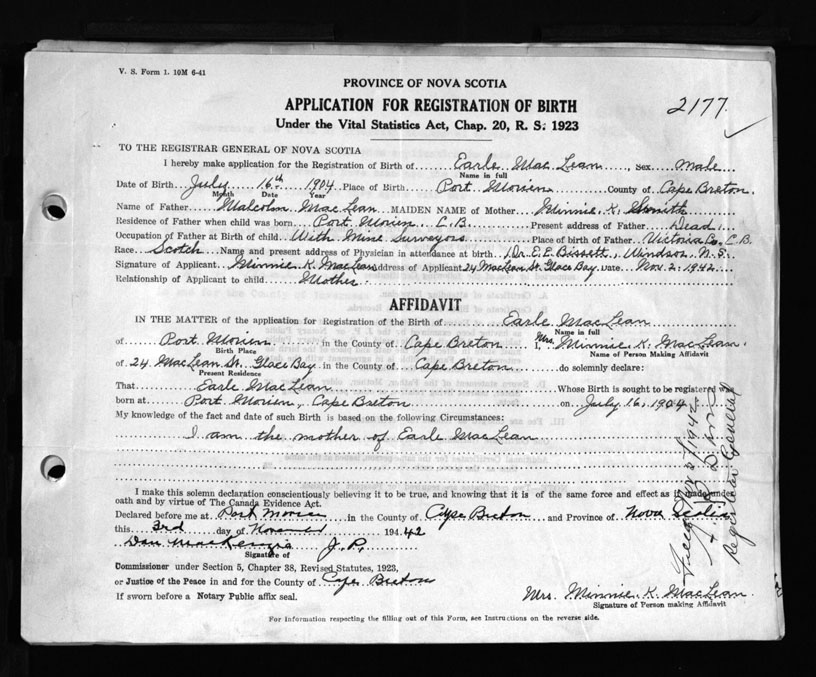 V. S. Form 1. 10M 6-41
PROVINCE OF NOVA SCOTIA
APPLICATION FOR REGISTRATION OF BIRTH
2177
Under the Vital Statistics Act, Chap. 20, R. S. 1923
TO THE REGISTRAR GENERAL OF NOVA SCOTIA
I hereby make application for the Registration of Birth of Earle MacLean, Sex Male
Name in full
Date of Birth July 16th 1904 Place of Birth Port Morien County of Cape Breton
Month Date Year
Name of Father Malcolm MacLean MAIDEN NAME of Mother Minnie K. Smith
Residence of Father when child was born Port Morien C.B. Present address of Father Dead
Occupation of Father at Birth of child With Mine Surveyors Place of birth of Father Victoria Co. C.B.
Race Scotch Name and present address of Physician in attendance at birth Dr. E. E. Bissett, Windsor, N.S.
Signature of Applicant Minnie K. MacLean Address of Applicant 24 MacLean St. Glace Bay Date Nov. 2. 1942
Relationship of Applicant to child Mother
AFFIDAVIT
IN THE MATTER of the application for Registration of the Birth of Earle MacLean
Name in full
of Port Morien in the County of Cape Breton I, Mrs. Minnie K. MacLean
Birth Place Name of Person Making Affidavit
of 24 MacLean St. Glace Bay in the County of Cape Breton do solemnly declare:
Present Residence
That Earle MacLean Whose Birth is sought to be registered
born at Port Morien, Cape Breton on July 16, 1904
My knowledge of the fact and date of such Birth is based on the following Circumstances:
I am the mother of Earle MacLean
I make this solemn declaration conscientiously believing it to be true, and knowing that it is of the same force and effect as if made under
oath and by virtue of The Canada Evidence Act.
Declared before me at Port Morien in the County of Cape Breton and Province of Nova Scotia
this 3rd day of 194 42
Dan MacKenzie J.P.
Signature of
Commissioner under Section 5, Chapter 38, Revised Statutes, 1923,
or Justice of the Peace in and for the County of Cape Breton
If sworn before a Notary Public affix seal.
Mrs. Minnie K. MacLean
Signature of Person making Affidavit
For Information respecting the filling out of this Form, see Instructions on the reverse side.
1942
Registrar General